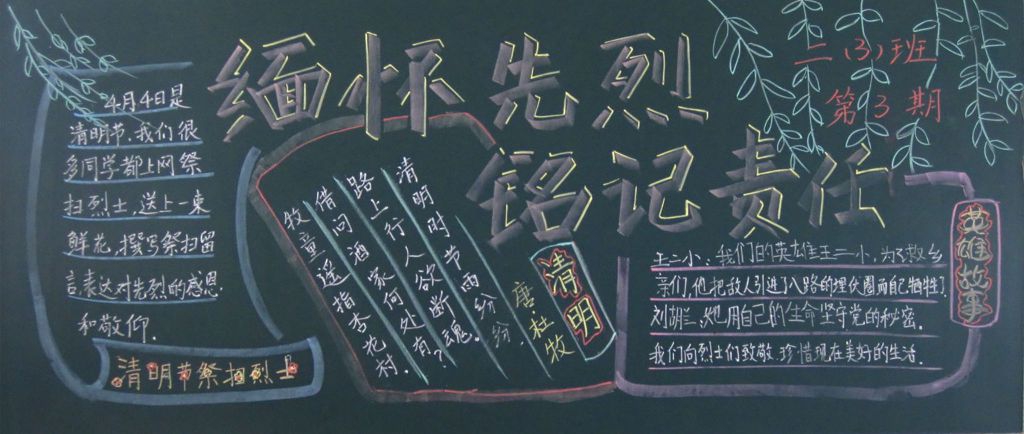 缅怀先烈
铭记责任
二(3)班
第3期
4月4日是
清明节,我们很
多同学都上网祭
扫烈士,送上一束
鲜花,撰写祭扫留
言表达对先烈的感恩
和敬仰.
清明节祭扫烈士
清明
唐杜牧
清明时节雨纷纷,
路上行人欲断魂.
借问酒家何处有?
牧童遥指杏花村.
英雄故事
王二小:我们的英雄王二小,为了救乡
亲们,他把敌人引进了八路的埋伏圈而自己牺牲了.
刘胡兰:她用自己的生命坚守党的秘密.
我们向烈士们致敬,珍惜现在美好的生活.